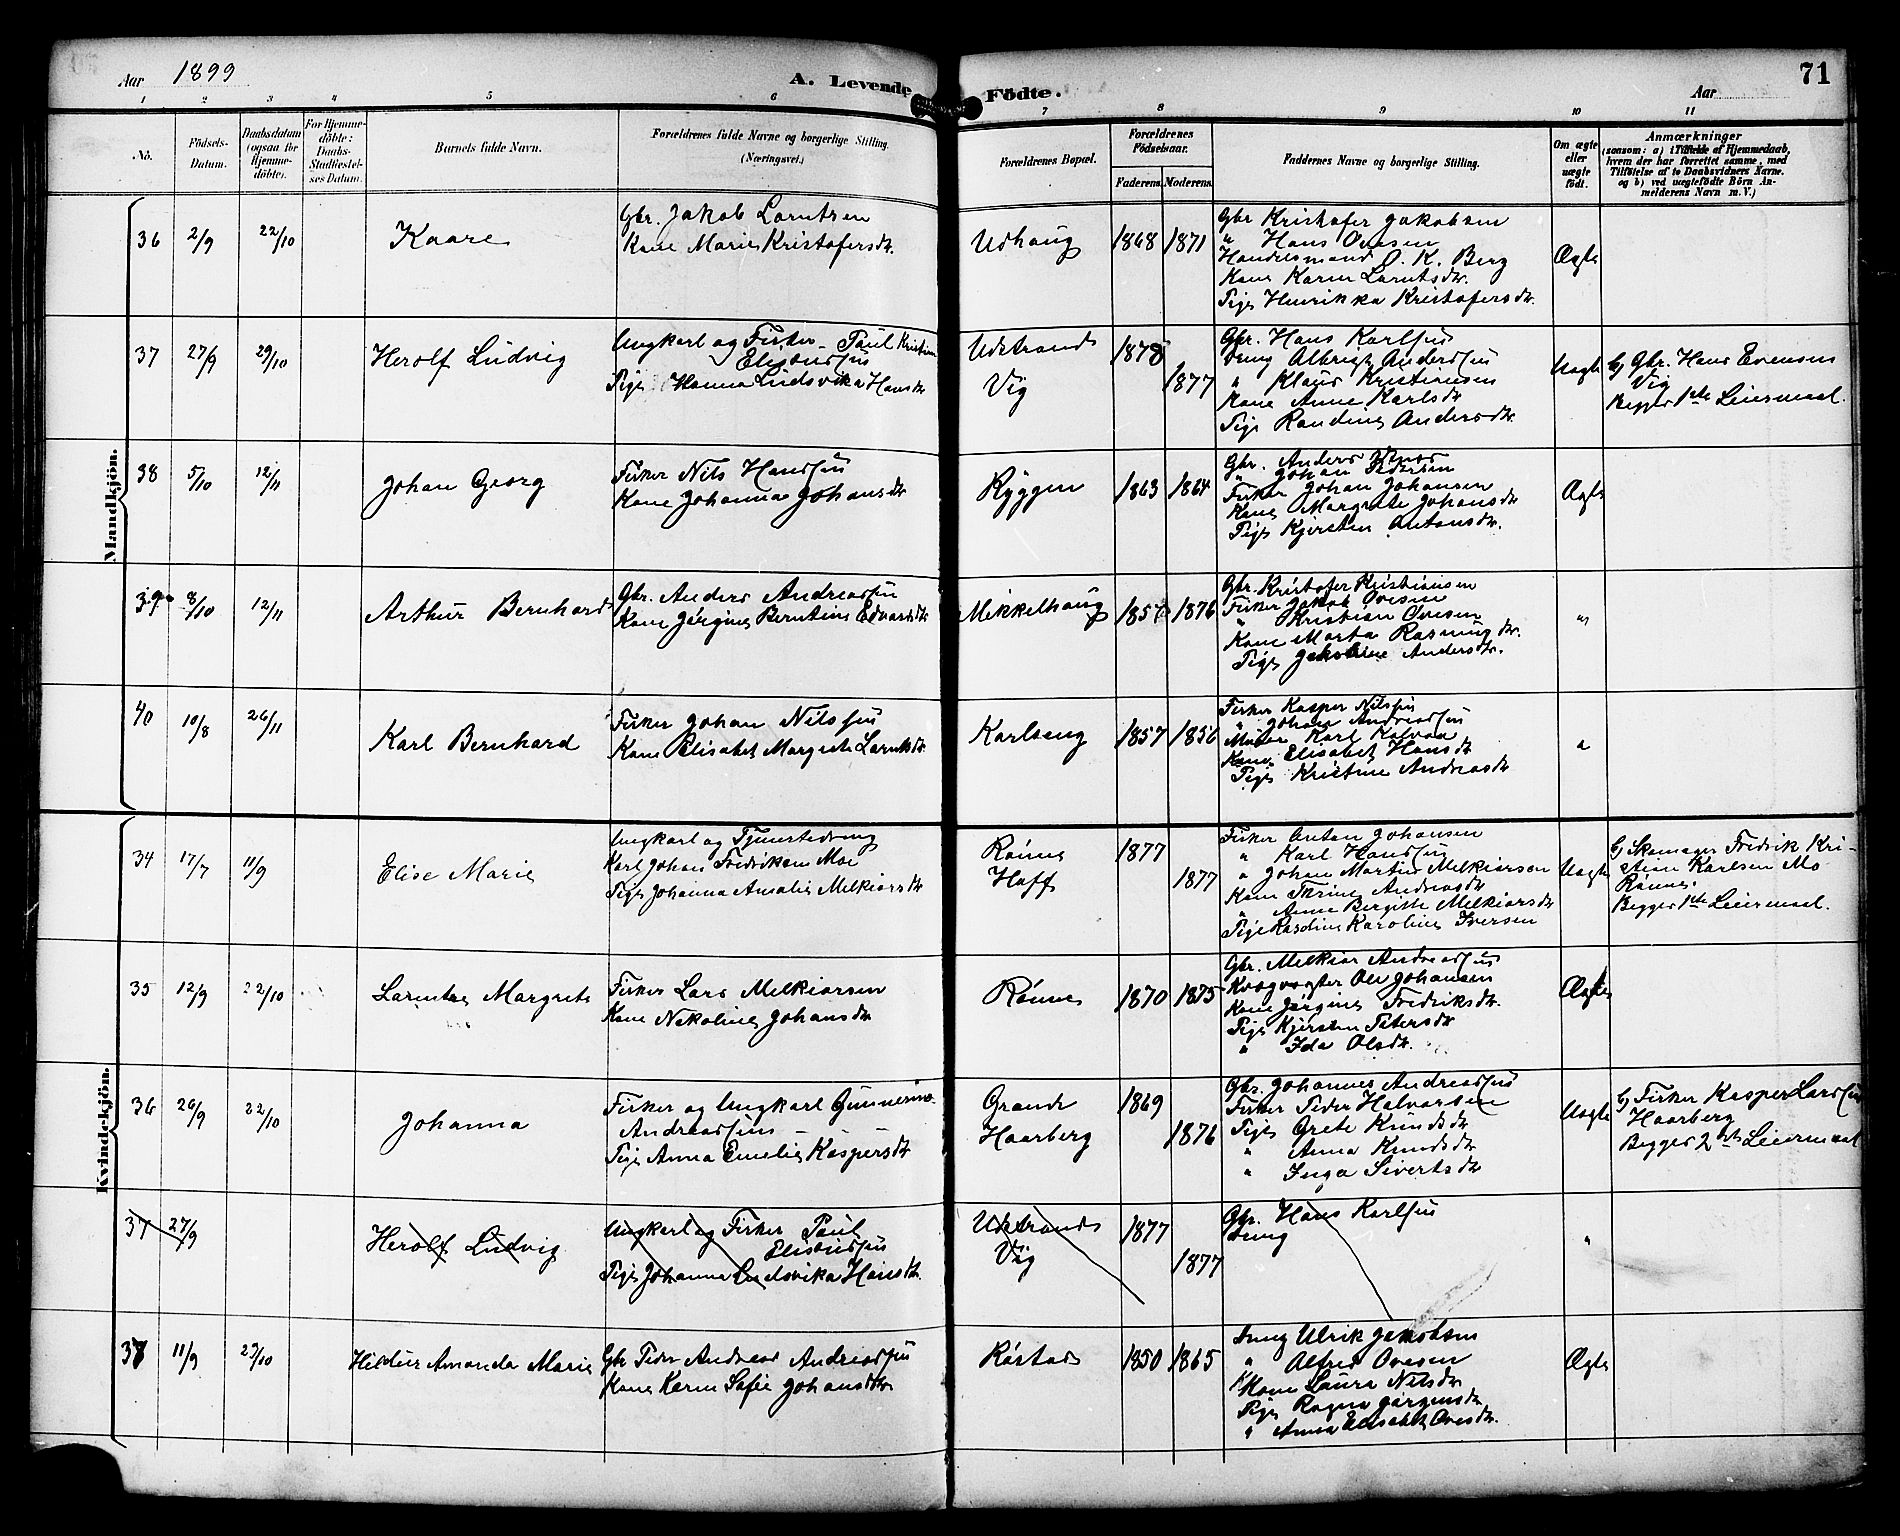 Aar 1899
A. Levende Födte.
Aar
71
1 2 3 4 5 6 7 8 9 10 11
No.
Födsels-Datum.
Daabsdatum (ogsaa for Hjemme-döbte).
For Hjemme-döbte: Daabs-Stadfæstel-ses Datum.
Barnets fulde Navn.
Forældrenes fulde Navne og borgerlige Stilling. (Næringsvei.)
Forældrenes Bopæl.
Forældrenes Födselsaar.
Faderens. Moderens.
Faddernes Navne og borgerlige Stilling.
Om ægte eller uægte födt.
Anmærkninger
(saasom: a) i Tilfælde af Hjemmedaab,
hvem der har forrettet samme, med
Tilföielse af to Daabsvidners Navne.
og b) ved uægtefödte Börn An-
melderens Navn m. V.)
Mandkjön.
36 2/9 22/10 Kaare
Gbr. Jakob Larntsen
Kone Marie Kristofersdtr.
Udhaug 1868 1871
Gbr Kristofer Jakobsen
" Hans Ovesen
Handelsmand O. K. Berg
Kone Karen Larntsdtr.
Pige Henrikka Kristofersdtr.
Ægte
37 27/9 29/10 Herolf Ludvig
Ungkarl og Fisker Paul Kristian
Elisæussen
Pige Hanna Ludsvika Hansdtr
Udstrand
Vig
1878
1877
Gbr. Hans Karlsen
Dreng Albregt Anderssen
" Klaus Kristiansen
Kone Anne Karlsdtr
Pige Randine Andersdtr.
Uægte
Gbr. Hans Evensen
Vig
Begges 1ste Leiermaal.
38 5/10 12/11 Johan Georg
Fisker Nils Hanssen
Kone Johanna Johansdtr
Ryggen 1863 1864
Gbr. Anders
" Johan Pedersen
Fisker Johan Johansen
Kone Margrete Johansdtr
Pige Kjersten Antonsdtr.
Ægte
39 8/10 12/11 Arthur Bernhard
Gbr. Anders Andreassen
Kone Jørgine Berntine Edvardsdtr
Mikkelhaug 1857 1876
Gbr. Kristofer Kristiansen
Fisker Jakob Ovesen
" Kristian Ovesen
Kone Marta Rasmusdtr.
Pige Jakobine Andersdtr.
"
40 10/8 26/11 Karl Bernhard
Fisker Johan Nilssen
Kone Elisabet Margrete Larntsdtr
Karlseng 1857 1856
Fisker Kasper Nilssen
" Johan Andreassen
Maler Karl Kalvaa
Kone Elisabet Hansdtr
Pige Kristine Andreasdtr
"
Kvindekjön.
34 17/7 11/9 Elise Marie
Ungkarl og Tjenestedreng
Karl Johan Fredriksen Moe
Pige Johanna Amalie Melkiorsdtr
Rønne
Hoff
1877
1877
Fisker Anton Johansen
" Karl Hanssen
" Johan Martin Melkiorsen
Kone Thrine Andreasdtr
" Anne Bergitte Melkiorsdtr
Pige Rasdine Karoline Iversen
Uægte
Skomager Fredrik Kri-
stian Karlsen Mo
Rønne.
Begges 1ste Leiermaal.
35 12/9 22/10 Larentse Margrete
Fisker Lars Melkiorsen
Kone Nekoline Johansdtr
Rønne 1870 1875
Gbr. Melkior Andreassen
Krogvogter Ole Johansen
Kone Jørgine Fredriksdtr.
Pige Kjersten Petersdtr
" Ida Olsdtr.
Ægte
36 26/9 22/10 Johanna
Fisker og Ungkarl Gunnerius
Andreassen
Pige Anna Emelie Kaspersdtr
Grande
Haarberg
1869
1876
Gbr. Johannes Andreassen
Fisker Peder Halvorsen
Pige Grete Knudsdtr
" Anna Knudsdtr
" Inga Sivertsdtr
Uægte
Fisker Kasper Larssen
Haarberg
Begges 2det Leiermaal
37 27/9 Herolf Ludvig
Ungkarl og Fisker Paul
Elisæussen
Pige Johanna Ludsvika Hansdtr.
Udstrand
Vig
1877
1877
Gbr. Hans Karlsen
Dreng
"
37 11/9 23/10 Hildur Amanda Marie
Gbr Peder Andreas Andreassen
Kone Karen Sofie Johansdtr
Røstad 1850 1865
Dreng Ulrik Jakobsen
" Alfred Ovesen
Kone Laura Nilsdtr
Pige Ragna Jørgensdtr
" Anna Elisabet Ovesdtr.
Ægte